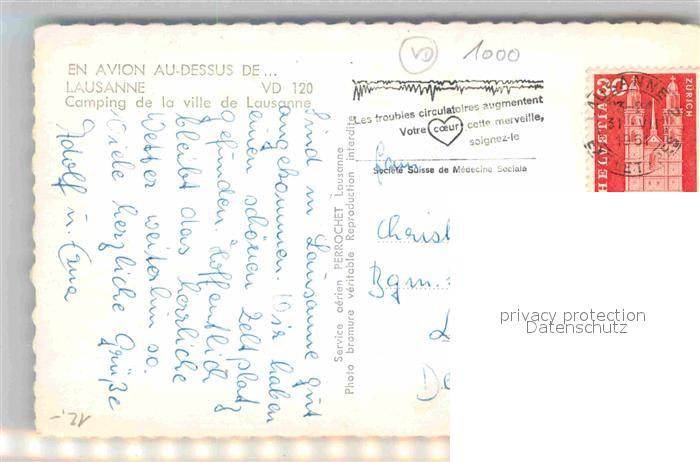 VD 1000
EN AVION AU-DESSUS DE ...
LAUSANNE VD 120
Camping de la ville de Lausanne
Sind in Lausanne gut
angekommen. Wir haben
einen schönen Zeltplatz
gefunden. Hoffentlich
bleibt das herrliche
Wetter weiterhin so.
Viele herzliche Grüße
Adolf u. Erna
12.-
Service aérien PERROCHET Lausanne
Photo bromure véritable Reproduction interdite
Les troubles circulatoires augmentent
Votre cœur, cette merveille,
soignez-le
Société Suisse de Médecine Sociale
30
HELVETIA
ZÜRICH
LAUSANNE
Fam.
Christ
Bgm.
privacy protection
Datenschutz